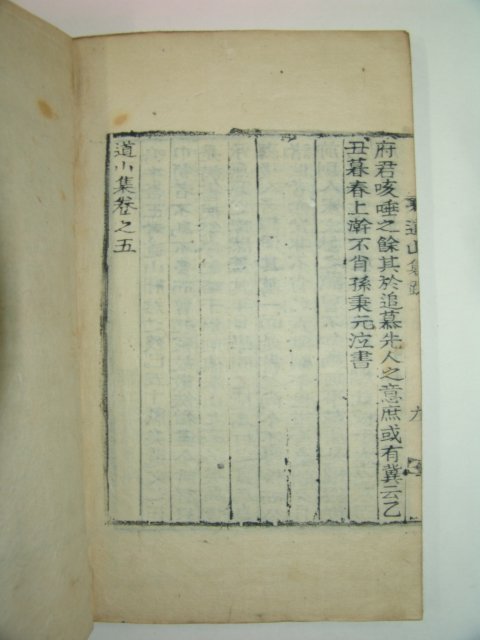 道山集跋
府君咳唾之餘其於追慕先人之意庶或有冀云乙
丑暮春上澣不肖孫秉元泣書
道山集卷之五